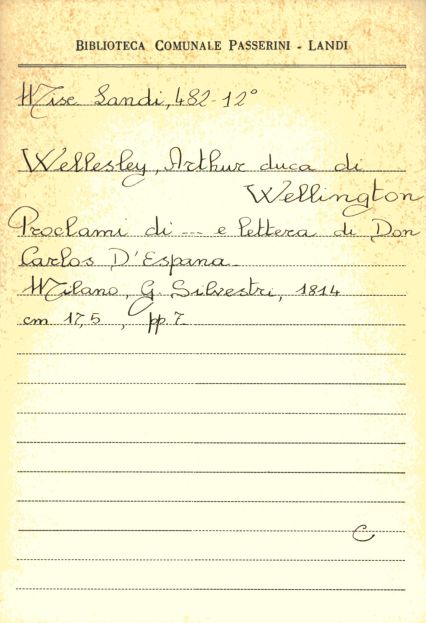 BIBLIOTECA COMUNALE PASSERINI - LANDI
Misc. Landi, 482-12°
Wellesley, Arthur duca di
Wellington
Proclami di --- e lettera di Don
Carlos D'Espana.
Milano, G. Silvestri, 1814
cm 17,5 , pp. 7.
C